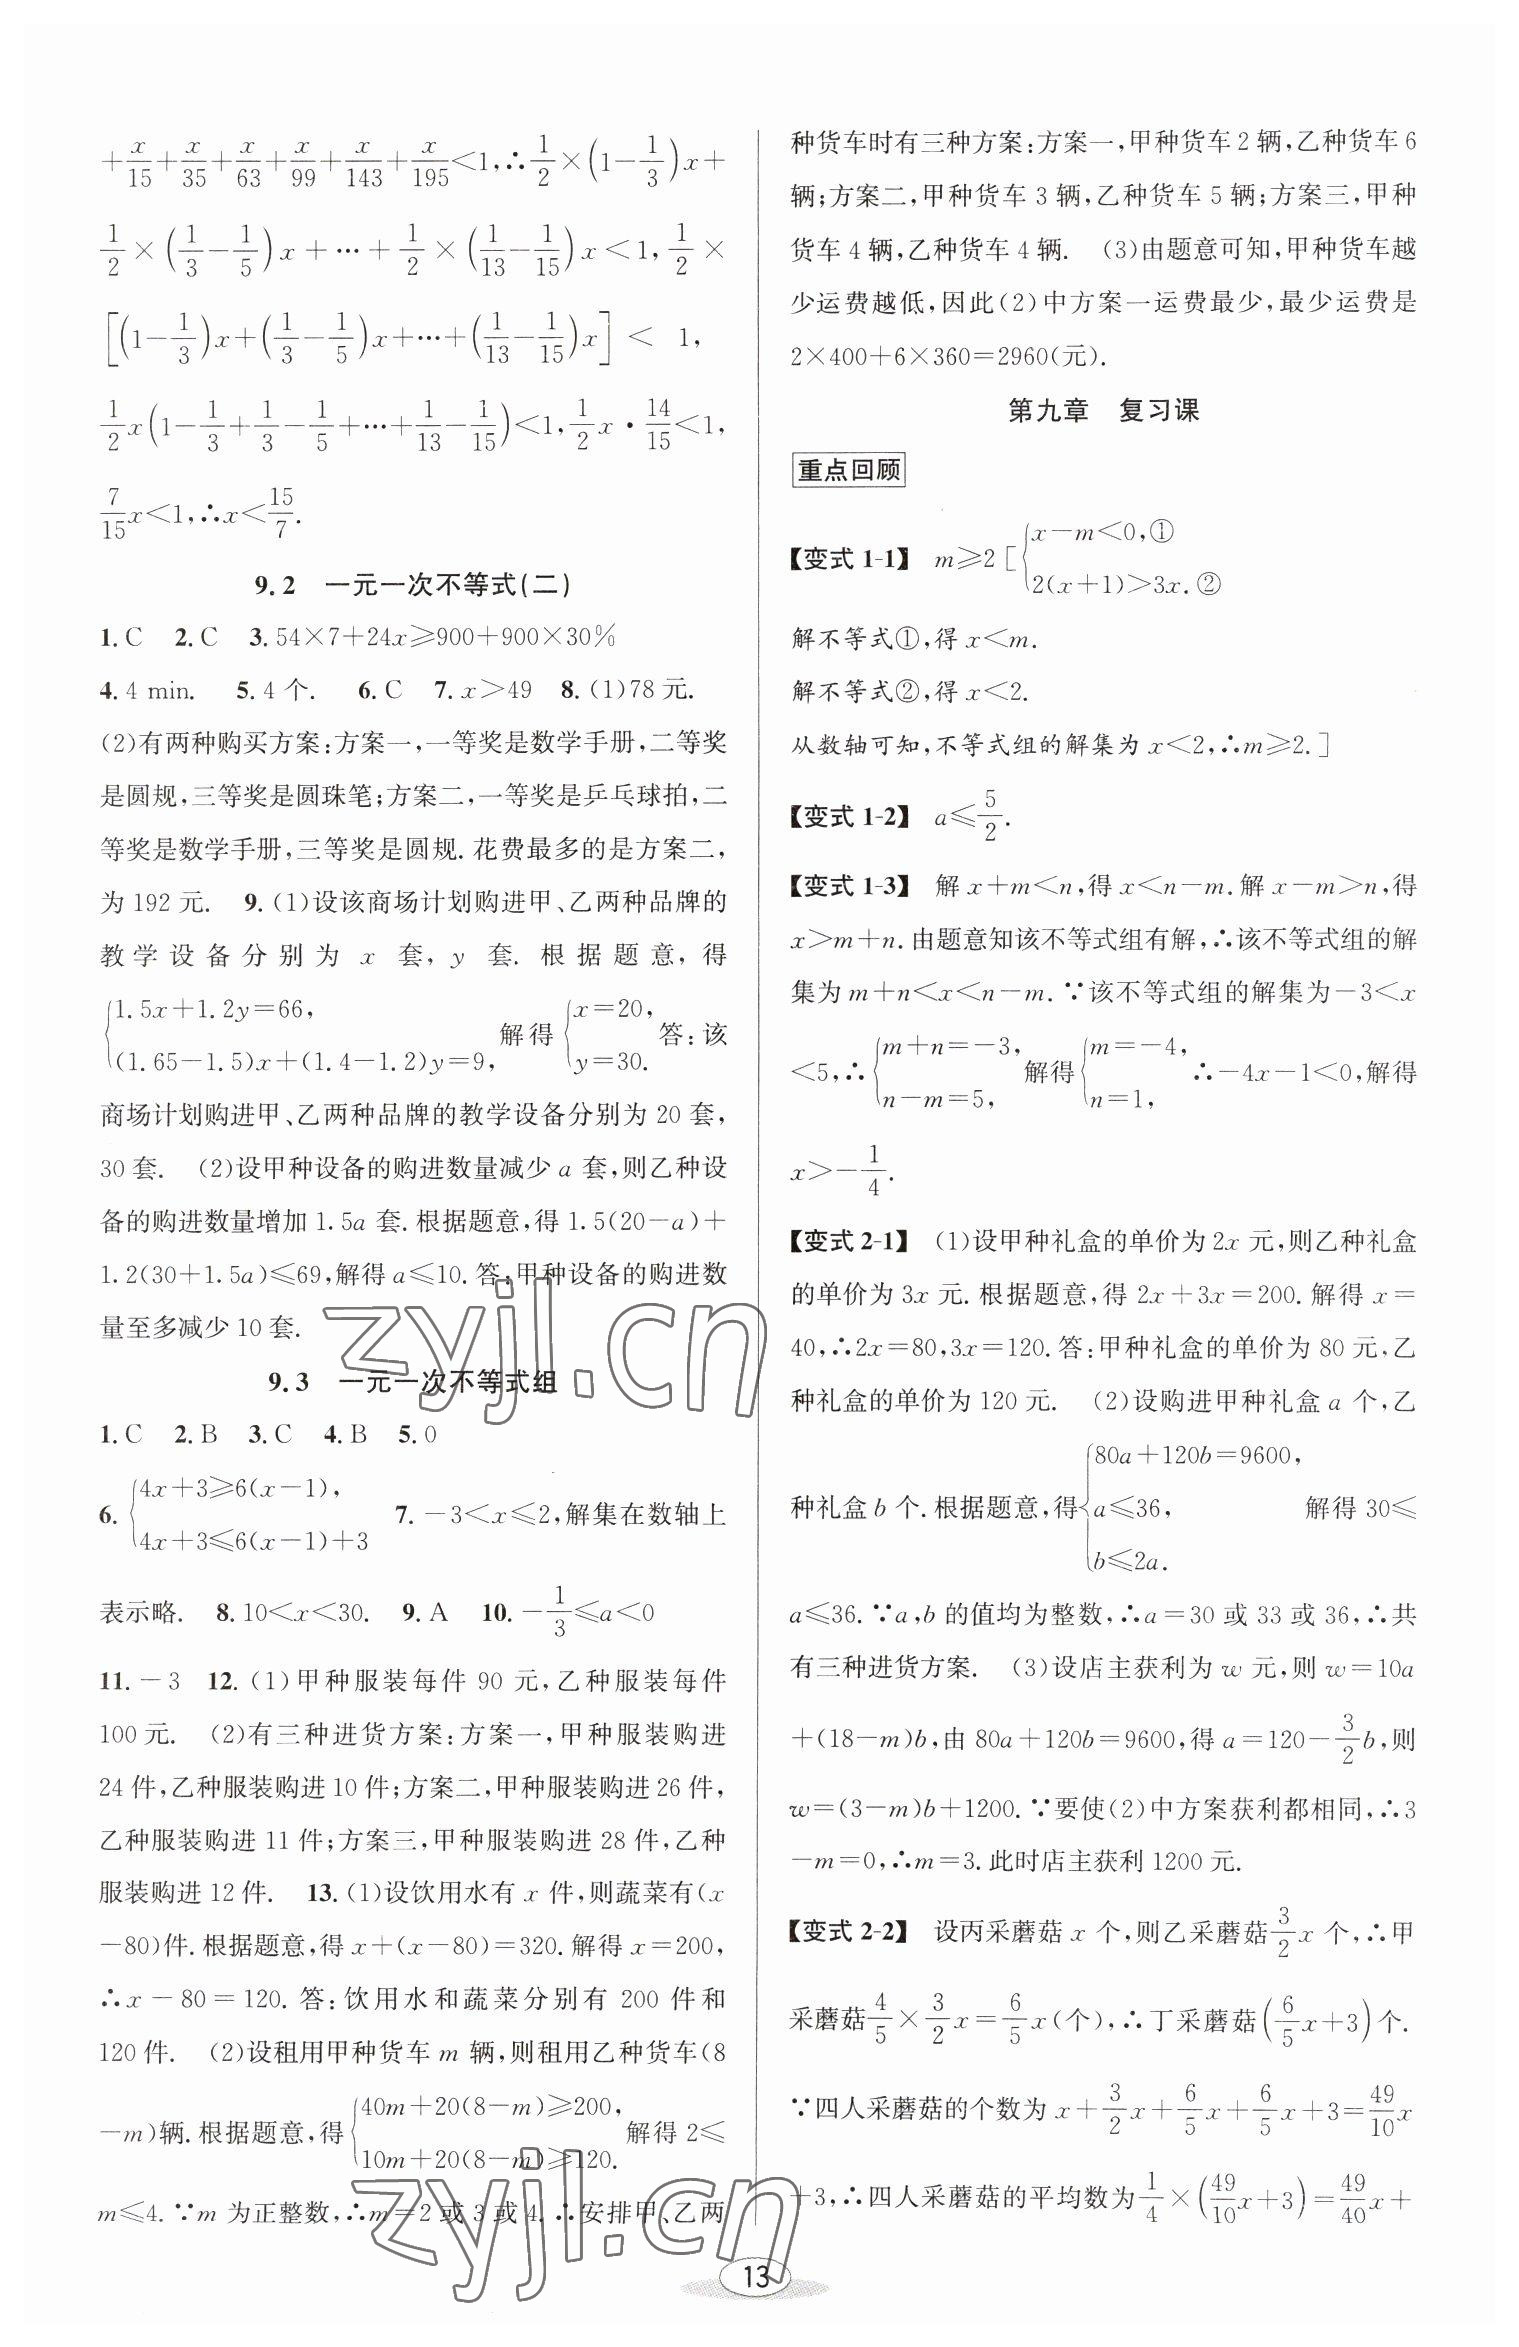 +x/15+x/35+x/63+x/99+x/143+x/195<1,∴1/2×(1-1/3)x+
1/2×(1/3-1/5)x+…+1/2×(1/13-1/15)x<1,1/2×
[(1-1/3)x+(1/3-1/5)x+…+(1/13-1/15)x]<1,
1/2x(1-1/3+1/3-1/5+…+1/13-1/15)<1,1/2x·14/15<1,
7/15x<1,∴x<15/7.
9.2 一元一次不等式(二)
1.C 2.C 3.54×7+24x≥900+900×30%
4.4 min. 5.4个. 6.C 7.x>49 8.(1)78元.
(2)有两种购买方案:方案一,一等奖是数学手册,二等奖
是圆规,三等奖是圆珠笔;方案二,一等奖是乒乓球拍,二
等奖是数学手册,三等奖是圆规.花费最多的是方案二,
为192元. 9.(1)设该商场计划购进甲、乙两种品牌的
教学设备分别为x套,y套.根据题意,得
{1.5x+1.2y=66, (1.65-1.5)x+(1.4-1.2)y=9, 解得{x=20, y=30. 答:该
商场计划购进甲、乙两种品牌的教学设备分别为20套,
30套. (2)设甲种设备的购进数量减少a套,则乙种设
备的购进数量增加1.5a套.根据题意,得1.5(20-a)+
1.2(30+1.5a)≤69,解得a≤10.答:甲种设备的购进数
量至多减少10套.
9.3 一元一次不等式组
1.C 2.B 3.C 4.B 5.0
6.{4x+3≥6(x-1), 4x+3≤6(x-1)+3 7.-3<x≤2,解集在数轴上
表示略. 8.10<x<30. 9.A 10.-1/3≤a<0
11.-3 12.(1)甲种服装每件90元,乙种服装每件
100元. (2)有三种进货方案:方案一,甲种服装购进
24件,乙种服装购进10件;方案二,甲种服装购进26件,
乙种服装购进11件;方案三,甲种服装购进28件,乙种
服装购进12件. 13.(1)设饮用水有x件,则蔬菜有(x
-80)件.根据题意,得x+(x-80)=320.解得x=200,
∴x-80=120.答:饮用水和蔬菜分别有200件和
120件. (2)设租用甲种货车m辆,则租用乙种货车(8
-m)辆.根据题意,得{40m+20(8-m)≥200, 10m+20(8-m)≥120. 解得2≤
m≤4.∵m为正整数,∴m=2或3或4.∴安排甲、乙两
种货车时有三种方案:方案一,甲种货车2辆,乙种货车6
辆;方案二,甲种货车3辆,乙种货车5辆;方案三,甲种
货车4辆,乙种货车4辆. (3)由题意可知,甲种货车越
少运费越低,因此(2)中方案一运费最少,最少运费是
2×400+6×360=2960(元).
第九章 复习课
重点回顾
【变式1-1】 m≥2[{x-m<0,① 2(x+1)>3x.②
解不等式①,得x<m.
解不等式②,得x<2.
从数轴可知,不等式组的解集为x<2,∴m≥2.]
【变式1-2】 a≤5/2.
【变式1-3】 解x+m<n,得x<n-m.解x-m>n,得
x>m+n.由题意知该不等式组有解,∴该不等式组的解
集为m+n<x<n-m.∵该不等式组的解集为-3<x
<5,∴{m+n=-3, n-m=5, 解得{m=-4, n=1, ∴-4x-1<0,解得
x>-1/4.
【变式2-1】 (1)设甲种礼盒的单价为2x元,则乙种礼盒
的单价为3x元.根据题意,得2x+3x=200.解得x=
40,∴2x=80,3x=120.答:甲种礼盒的单价为80元,乙
种礼盒的单价为120元. (2)设购进甲种礼盒a个,乙
种礼盒b个.根据题意,得{80a+120b=9600, a≤36, b≤2a. 解得30≤
a≤36.∵a,b的值均为整数,∴a=30或33或36,∴共
有三种进货方案. (3)设店主获利为w元,则w=10a
+(18-m)b,由80a+120b=9600,得a=120-3/2b,则
w=(3-m)b+1200.∵要使(2)中方案获利都相同,∴3
-m=0,∴m=3.此时店主获利1200元.
【变式2-2】 设丙采蘑菇x个,则乙采蘑菇3/2x个,∴甲
采蘑菇4/5×3/2x=6/5x(个),∴丁采蘑菇(6/5x+3)个.
∵四人采蘑菇的个数为x+3/2x+6/5x+6/5x+3=49/10x
+3,∴四人采蘑菇的平均数为1/4×(49/10x+3)=49/40x+
13
zyjl.cn
zyjl.cn